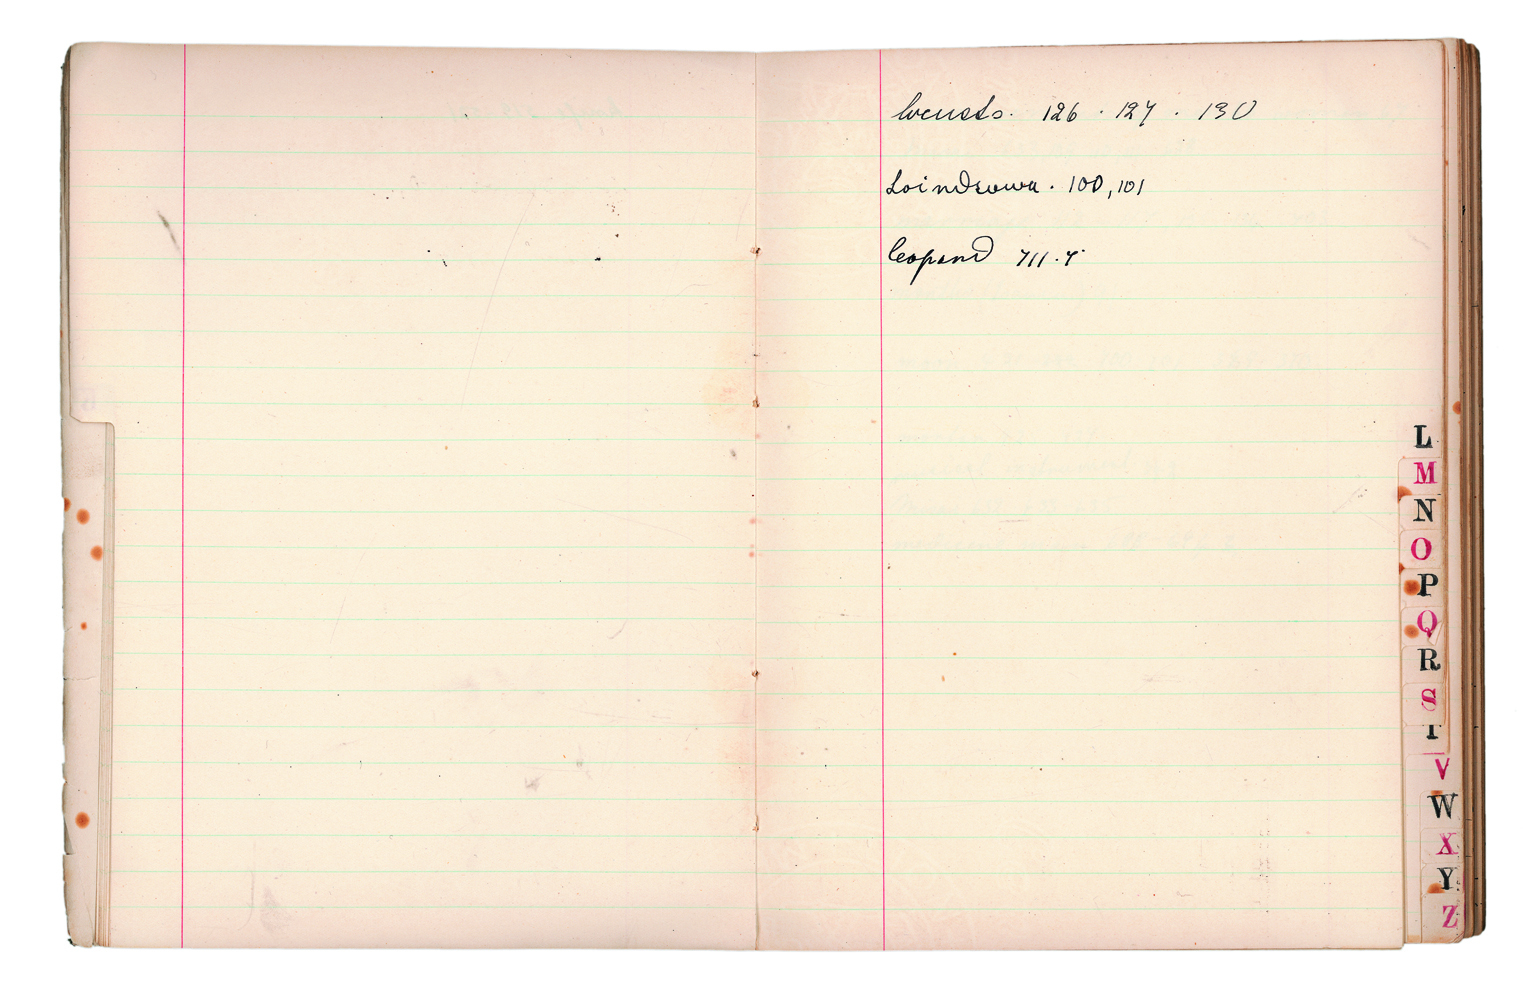 locusts. 126 . 127 . 130
100, 101
leopard 711.
L
M
N
O
P
Q
R
S
T
V
W
X
Y
Z